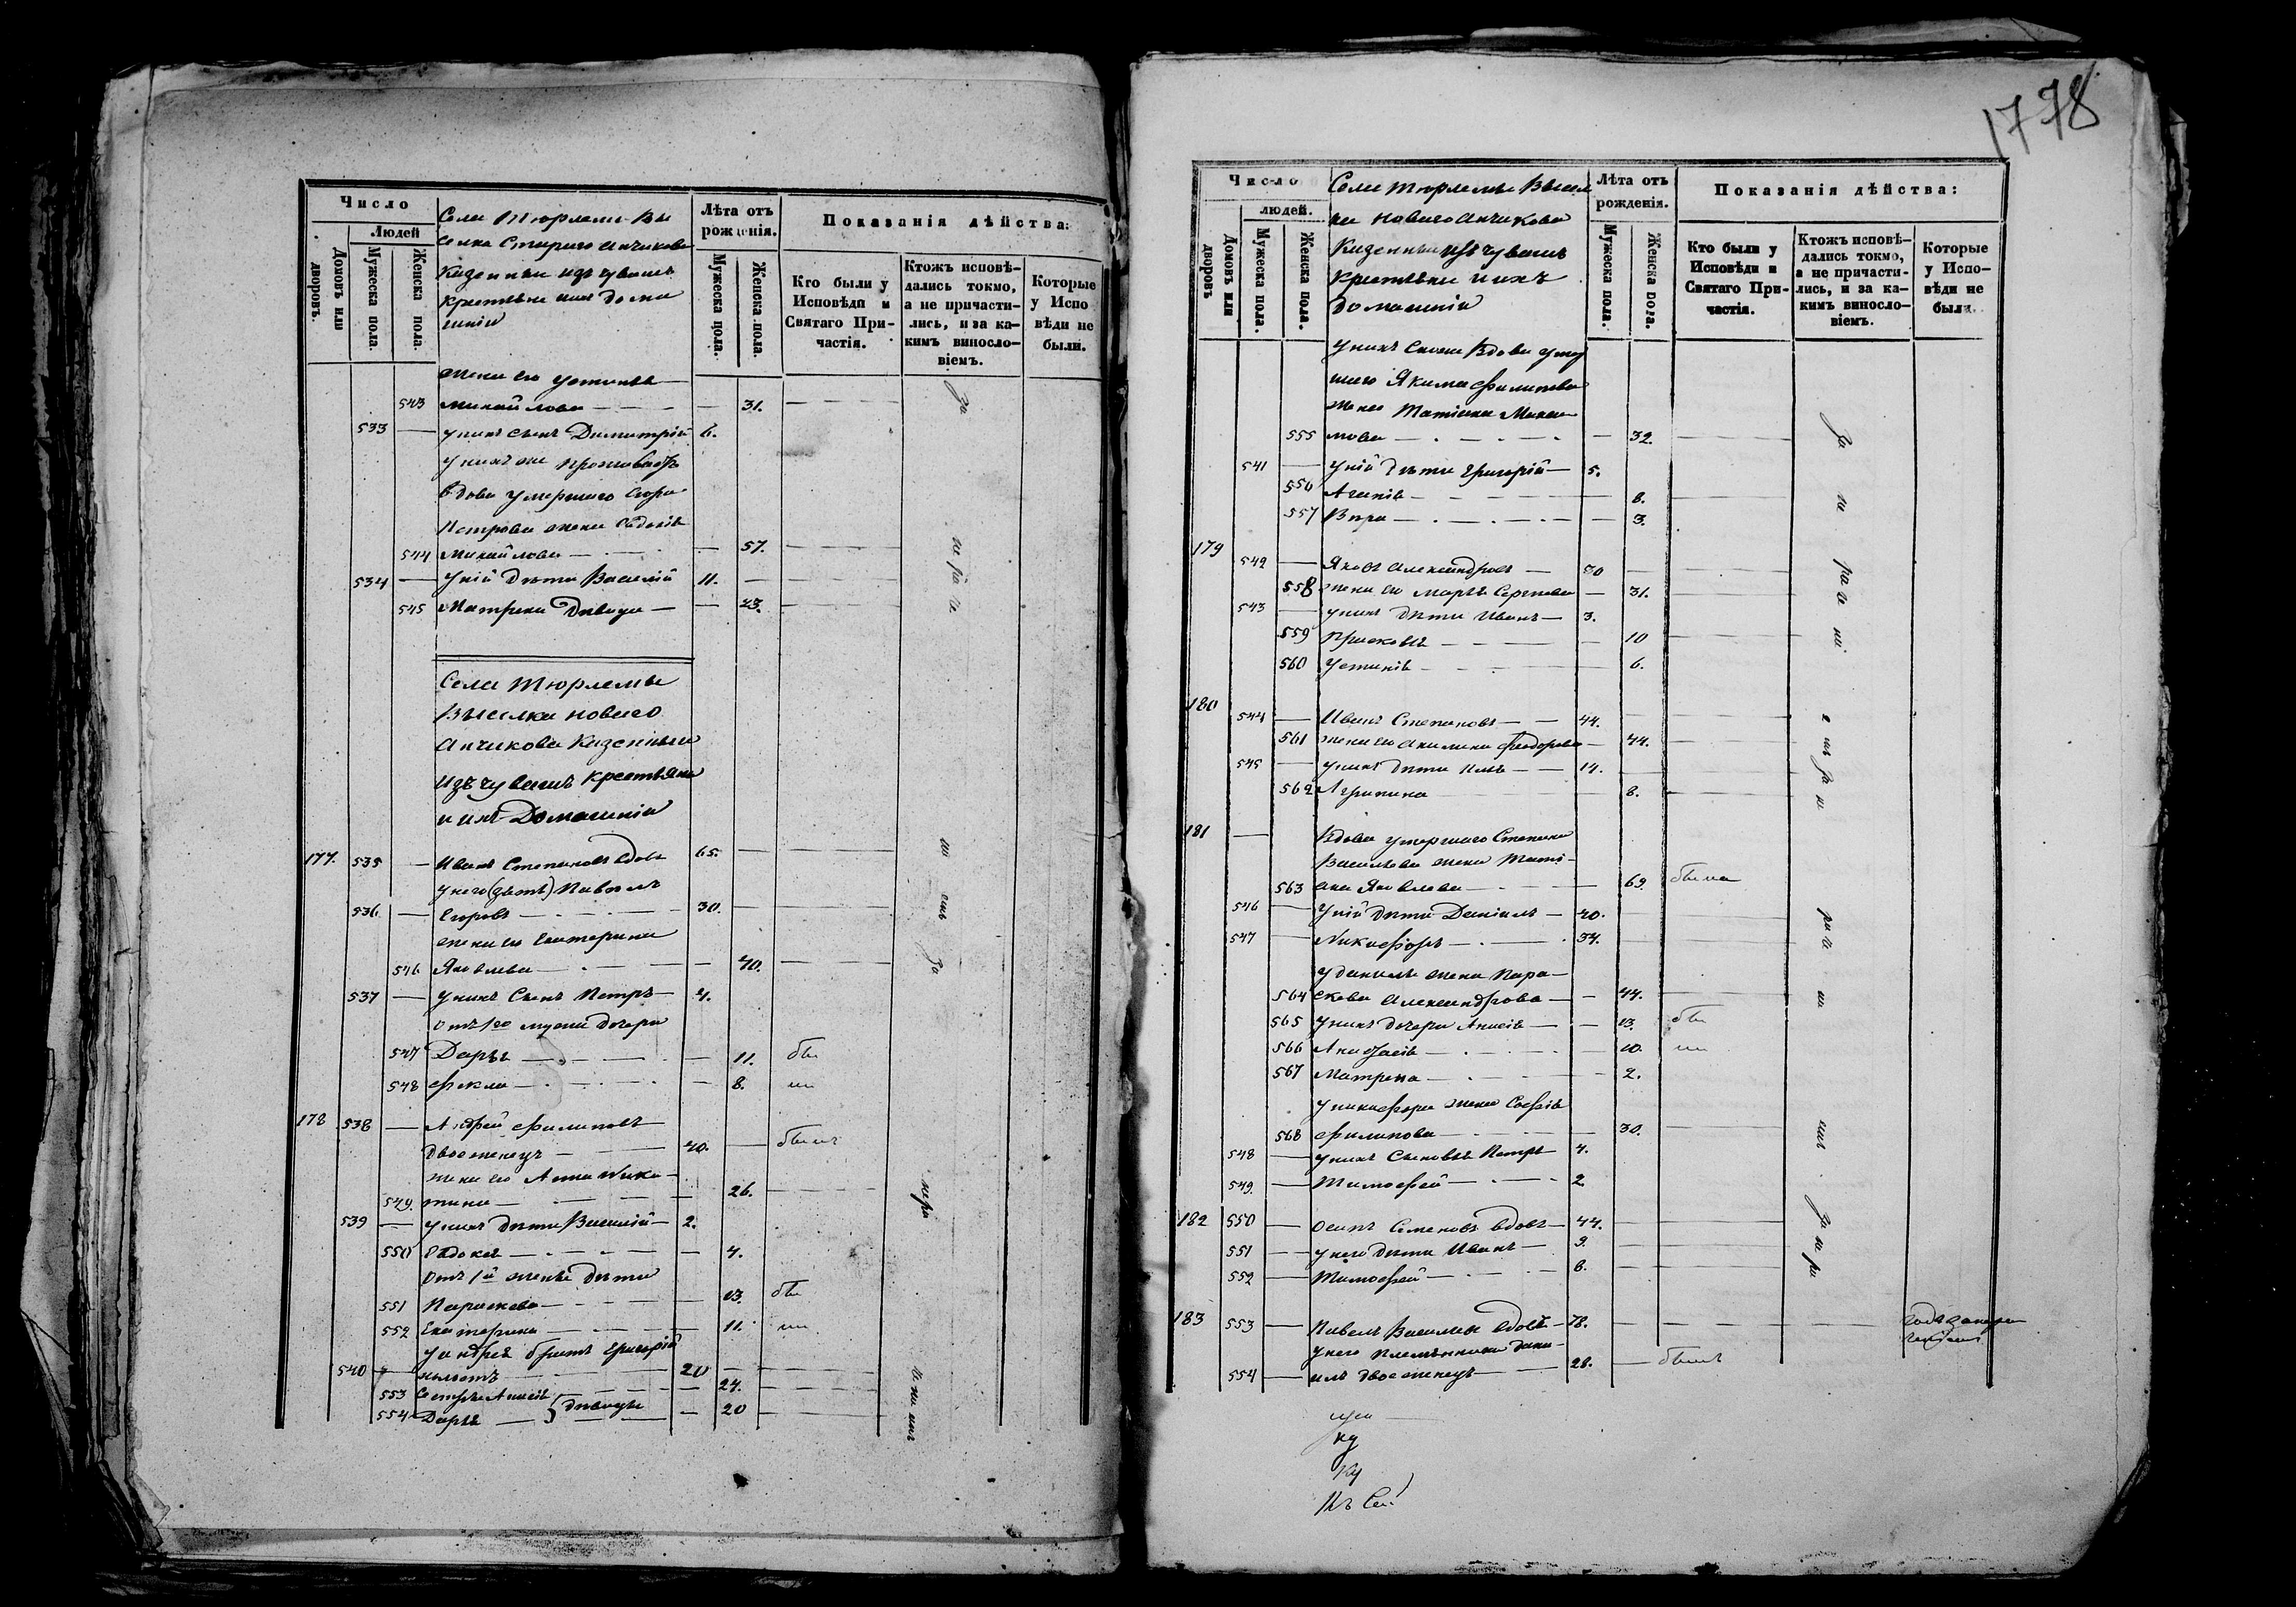 Число
Людей
Домовъ или дворовъ.
Мужеска пола.
Женска пола.
Села Тюрлемы Вы
селка Стараго Анчикова
Казенныи изъ чувашъ
крестьяне и ихъ дома
шнiи
Лѣта отъ рожденія.
Мужеска пола.
Женска пола.
Показанія дѣйства:
Кто были у Исповѣди и Святаго При-частія.
Ктожъ исповѣ-дались токмо, а не причасти-лись, и за ка-кимъ винослo-віемъ.
Которые у Испо вѣди не были.
жена его Устинья
543 Михайлова — 31.
533 у нихъ сынъ Димитрій 6.
у нихъ же проживаетъ
вдова умершаго Егора
Петрова жена Евдокія
544 Михайлова — 57.
534 у ней дѣти Василій 11.
545 Матрена дѣвица — 23.
Села Тюрлемы
Выселка Новаго
Анчикова Казенныи
изъ чувашъ крестьяне
и ихъ Домашніи
177. 535 Иванъ Степановъ вдовъ 65.
у него (зять) Павелъ
536 Егоровъ — 30.
жена его Екатерина
546 Яковлева — 40.
537 у нихъ сынъ Петръ — 4.
отъ 1го мужа дочери
547 Дарья — 11. бы
548 Фекла — 8. ли
178 538 Андрей Филиповъ
двоеженецъ — 40. былъ
жена его Анна Ники-
549. тина — 26.
539 у нихъ дѣти Василій — 2.
550 Евдокія — 4.
отъ 1й жены дѣти
551 Параскева — 13. бы
552 Екатерина — 11. ли
у Андрея братъ Григорій
540 холостъ 20
553 Сестры Анисія 24.
554 Дарья } дѣвицы 20
за
не
ра
че
ні
емъ
за
нера
че
ні
емъ
1778
Число
людей.
Домовъ или дворовъ
Мужеска пола.
Женска пола.
Села Тюрлемы Высел
ка Новаго Анчикова
Казенныи изъ чувашъ
крестьяне и ихъ
домашніи
Лѣта отъ рожденія.
Мужеска пола.
Женска пола.
Показанія дѣйства:
Кто были у Исповѣди и Святаго При-частія.
Ктожъ исповѣ-дались токмо, а не причасти-лись, и за ка-кимъ винослo-віемъ.
Которые у Испо-вѣди не были.
у нихъ сноха вдова умер
шаго Якима Филипова
жена Татіана Макси
555 мова — 32.
541 у ней дѣти Григорій — 5.
556 Агапія — 8.
557 Вѣра — 3.
179 542 Яковъ Александровъ — 30
558 жена его Марья Сергѣева — 31.
543 у нихъ дѣти Иванъ — 3.
559 Прасковья — 10
560 Устинія — 6.
180 544 Иванъ Степановъ — 44.
561 жена его Акилина Феодорова — 44.
545 у нихъ дѣти Илья — 14.
562 Агрипина 8.
181 Вдова умершаго Степана
Васильева жена Тати-
563 ана Яковлева — 69. была
546 у ней дѣти Даніилъ — 40.
547 Никифоръ — 34.
у Данилы жена Пара-
564 скева Александрова — 44.
565 у нихъ дочери Анисія — 13. бы
566 Анастасія — 10. ли
567 Матрена — 2.
у Никифора жена Софія
568 Филипова — 30.
548 у нихъ сыновья Петръ 4.
549. Тимофей — 2
182 550 Осипъ Семеновъ вдовъ — 44.
551 у него дѣти Иванъ — 9.
552 Тимофей — 6.
183 553 Павелъ Васильевъ вдовъ — 78.
у него племянники Дани-
554 илъ двоеженецъ — 28. былъ
за
не
ра
че
ні
емъ
за
не
ра
че
ні
емъ
за
не
ра